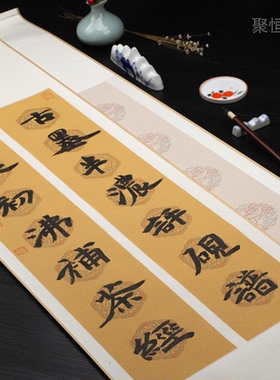 聚恒
古墨半濃評硯譜
初沸補茶經